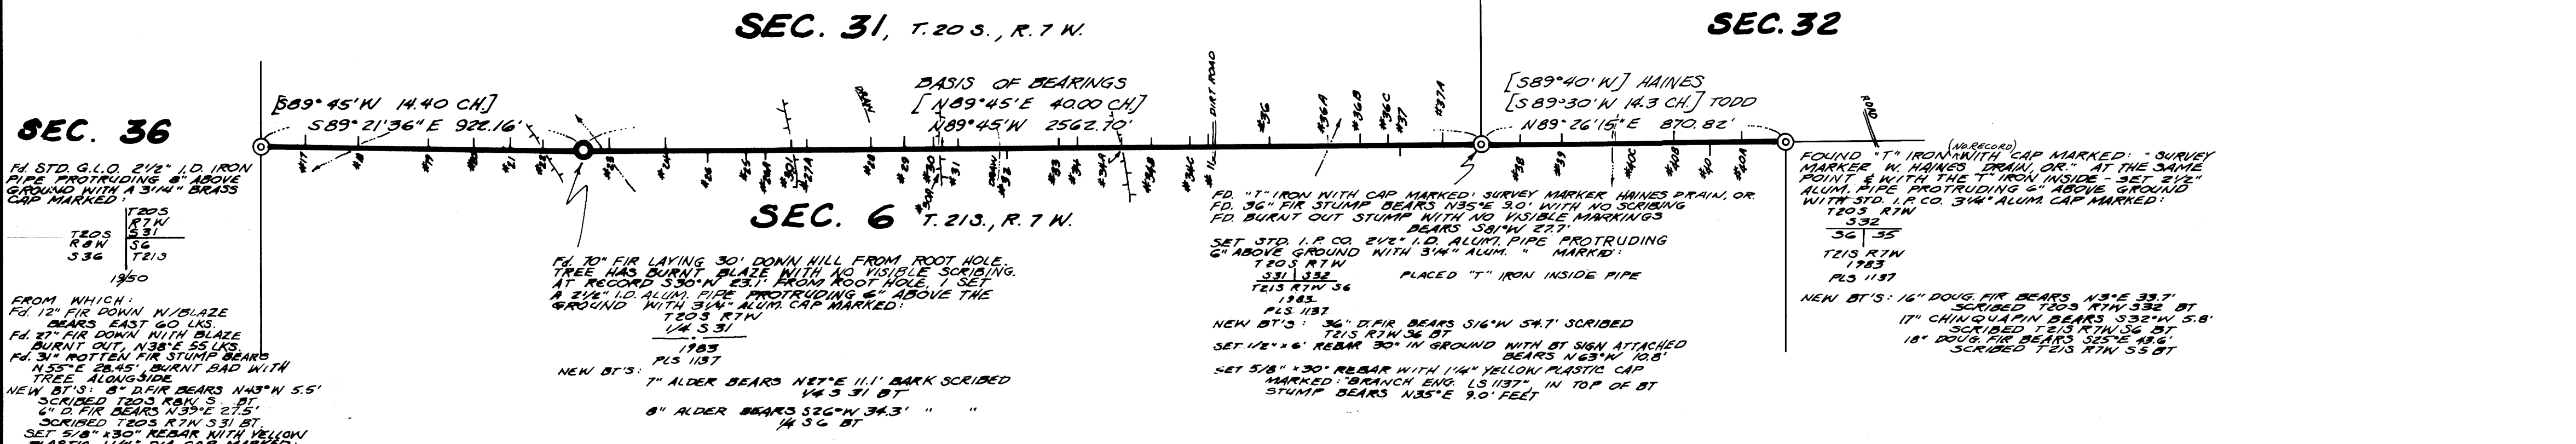 SEC. 31, T. 20 S., R. 7 W.
SEC. 32
SEC. 36
[S89°45'W 14.40 CH.]
S89°21'36"E 922.16'
BASIS OF BEARINGS
[N89°45'E 40.00 CH.]
N89°45'W 2562.70'
[S89°40'W] HAINES
[S89°30'W 14.3 CH.] TODD
N89°26'15"E 870.82'
DRAW
DIRT ROAD
ROAD
#36
#36A
#36B
#36C
#37
#37A
#17
#18
#19
#20
#21
#22
#23
#24
#25
#26A
#27A
#28
#29
#30
#30A
#31
DRAW
#32
#33
#34
#34A
#34B
#34C
#38
#39
#40C
#40B
#40
#40A
SEC. 6 T. 21S., R. 7 W.
Fd. STD. G.L.O. 2 1/2" I.D. IRON
PIPE PROTRUDING 8" ABOVE
GROUND WITH A 3 1/4" BRASS
CAP MARKED:
T20S
R7W
T20S S31
R8W S6
S36 T21S
1950
FROM WHICH:
Fd. 12" FIR DOWN W/BLAZE
BEARS EAST 60 LKS.
Fd. 27" FIR DOWN WITH BLAZE
BURNT OUT, N38°E 55 LKS.
Fd. 31" ROTTEN FIR STUMP BEARS
N55°E 28.45', BURNT BAD WITH
TREE ALONGSIDE
NEW BT'S: 8" D.FIR BEARS N43°W 5.5'
SCRIBED T20S R8W S BT
6" D. FIR BEARS N39°E 27.5'
SCRIBED T20S R7W S31 BT.
SET 5/8" x 30" REBAR WITH YELLOW
Fd. 70" FIR LAYING 30' DOWN HILL FROM ROOT HOLE.
TREE HAS BURNT BLAZE WITH NO VISIBLE SCRIBING.
AT RECORD S30°W 23.1' FROM ROOT HOLE, I SET
A 2 1/2" I.D. ALUM. PIPE PROTRUDING 6" ABOVE THE
GROUND WITH 3 1/4" ALUM. CAP MARKED:
T20S R7W
1/4 S 31
1983
PLS 1137
NEW BT'S:
7" ALDER BEARS N27°E 11.1' BARK SCRIBED
1/4 S 31 BT
8" ALDER BEARS S26°W 34.3' " "
1/4 S6 BT
FD. "T" IRON WITH CAP MARKED: SURVEY MARKER HAINES DRAIN, OR.
FD. 36" FIR STUMP BEARS N35°E 9.0' WITH NO SCRIBING
FD. BURNT OUT STUMP WITH NO VISIBLE MARKINGS
BEARS S81°W 27.7'
SET STD. I.P. CO. 2 1/2" I.D. ALUM. PIPE PROTRUDING
6" ABOVE GROUND WITH 3 1/4" ALUM. " MARKED:
T20S R7W
S31 | S32 PLACED "T" IRON INSIDE PIPE
T21S R7W S6
1983
PLS 1137
NEW BT'S: 36" D.FIR BEARS S16°W 54.7' SCRIBED
T21S R7W S6 BT
SET 1/2" x 6' REBAR 30" IN GROUND WITH BT SIGN ATTACHED
BEARS N63°W 10.8'
SET 5/8" x 30" REBAR WITH 1 1/4" YELLOW PLASTIC CAP
MARKED: "BRANCH ENG. LS 1137", IN TOP OF BT
STUMP BEARS N35°E 9.0' FEET
(NO RECORD)
FOUND "T" IRON WITH CAP MARKED: "SURVEY
MARKER W. HAINES DRAIN, OR." AT THE SAME
POINT & WITH THE "T" IRON INSIDE - SET 2 1/2"
ALUM. PIPE PROTRUDING 6" ABOVE GROUND
WITH STD. I.P. CO. 3 1/4" ALUM. CAP MARKED:
T20S R7W
S32
S6 | S5
T21S R7W
1983
PLS 1137
NEW BT'S: 16" DOUG. FIR BEARS N3°E 33.7'
SCRIBED T20S R7W S32 BT
17" CHINQUAPIN BEARS S32°W 5.8'
SCRIBED T21S R7W S6 BT
18" DOUG. FIR BEARS S25°E 43.6'
SCRIBED T21S R7W S5 BT